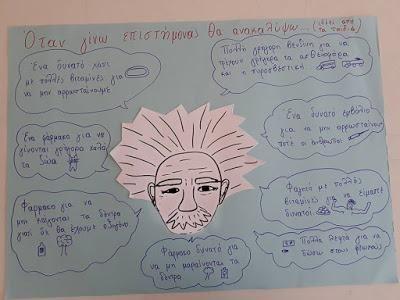 Όταν γίνω επιστήμονας θα ανακαλύψω... (ιδέες από
τα παιδιά)
Ένα δυνατό χάπι
με πολλές βιταμίνες για
να μην αρρωσταίνουμε
Πολύ γρήγορη βενζίνη για να
τρέχουν γρήγορα τα ασθενοφόρα
και η πυροσβεστική
Ένα φάρμακο για να
γίνονται γρήγορα καλά
τα ζώα
Ένα δυνατό εμβόλιο
για να μην αρρωσταίνουν
ποτέ οι άνθρωποι
Φάρμακο για να
μην καίγονται τα δέντρα
γιατί δε θα έχουμε οξυγόνο
Φαγητό με πολλές
βιταμίνες για να είμαστε
δυνατοί
Φάρμακο δυνατό για
να μη μαραίνονται τα
δέντρα
Πολλά λεφτά για να
δώσω στους φτωχούς